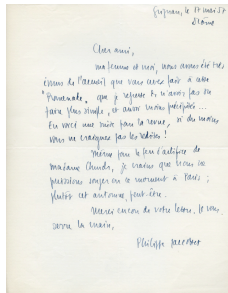 Grignan, le 17 mars 57
Drôme
Cher ami,
ma femme et moi, nous avons été très
émus de l'accueil que vous avez fait à cette
"Promenade", que je regrette de n'avoir pas su
faire plus simple, et avoir moins
En voici une suite pour la revue, si du moins
vous ne craignez pas les redites!
Même pour le feu d'artifice de
madame je crains que nous ne
puissions songer en ce moment à Paris;
plutôt cet automne, peut-être.
Merci encore de votre lettre. Je vous
serre la main,
Philippe Jaccottet